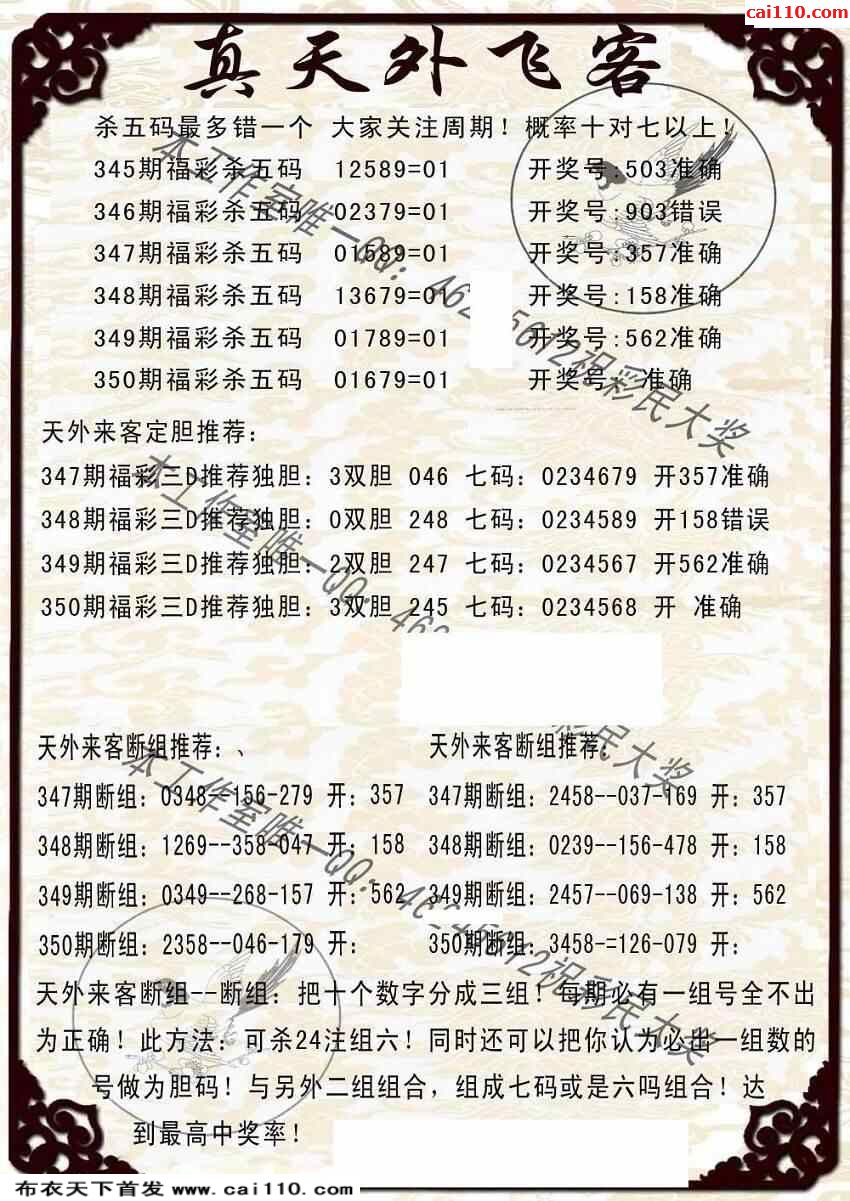 cai110.com
真天外飞客
杀五码最多错一个 大家关注周期！概率十对七以上！
345期福彩杀五码 12589=01 开奖号:503准确
346期福彩杀五码 02379=01 开奖号:903错误
347期福彩杀五码 01589=01 开奖号:357准确
348期福彩杀五码 13679=01 开奖号:158准确
349期福彩杀五码 01789=01 开奖号:562准确
350期福彩杀五码 01679=01 开奖号: 准确
天外来客定胆推荐：
347期福彩三D推荐独胆：3双胆 046 七码：0234679 开357准确
348期福彩三D推荐独胆：0双胆 248 七码：0234589 开158错误
349期福彩三D推荐独胆：2双胆 247 七码：0234567 开562准确
350期福彩三D推荐独胆：3双胆 245 七码：0234568 开 准确
天外来客断组推荐：、 天外来客断组推荐：
347期断组：0348--156-279 开：357 347期断组：2458--037-169 开：357
348期断组：1269--358-047 开：158 348期断组：0239--156-478 开：158
349期断组：0349--268-157 开：562 349期断组：2457--069-138 开：562
350期断组：2358--046-179 开： 350期断组：3458-=126-079 开：
天外来客断组--断组：把十个数字分成三组！每期必有一组号全不出
为正确！此方法：可杀24注组六！同时还可以把你认为必出一组数的
号做为胆码！与另外二组组合，组成七码或是六吗组合！达
到最高中奖率！
本工作室唯一QQ：
祝彩民大奖
本工作室唯一QQ：
彩民大奖
本工作室唯一QQ：
祝彩民大奖
布衣天下首发 www.cai110.com